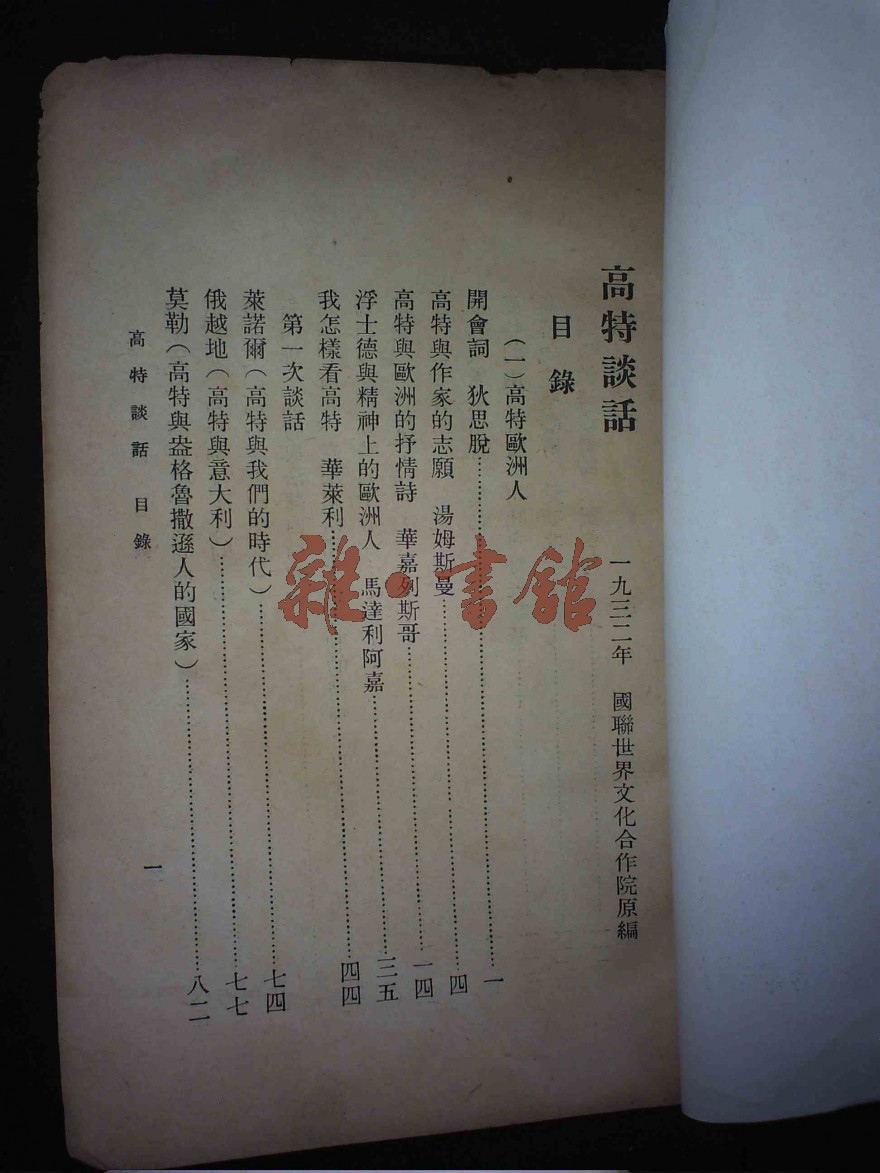 高特談話
一九三二年　國聯世界文化合作院原編
目錄
（一）高特歐洲人
開會詞　狄思脫……一
高特與作家的志願　湯姆斯曼……四
高特與歐洲的抒情詩　華嘉列斯哥……一四
浮士德與精神上的歐洲人　馬達利阿嘉……三五
我怎樣看高特　華萊利……四四
第一次談話
萊諾爾（高特與我們的時代）……七四
俄越地（高特與意大利）……七七
莫勒（高特與盎格魯撒遜人的國家）……八二
高特談話　目錄
一
雜·書館